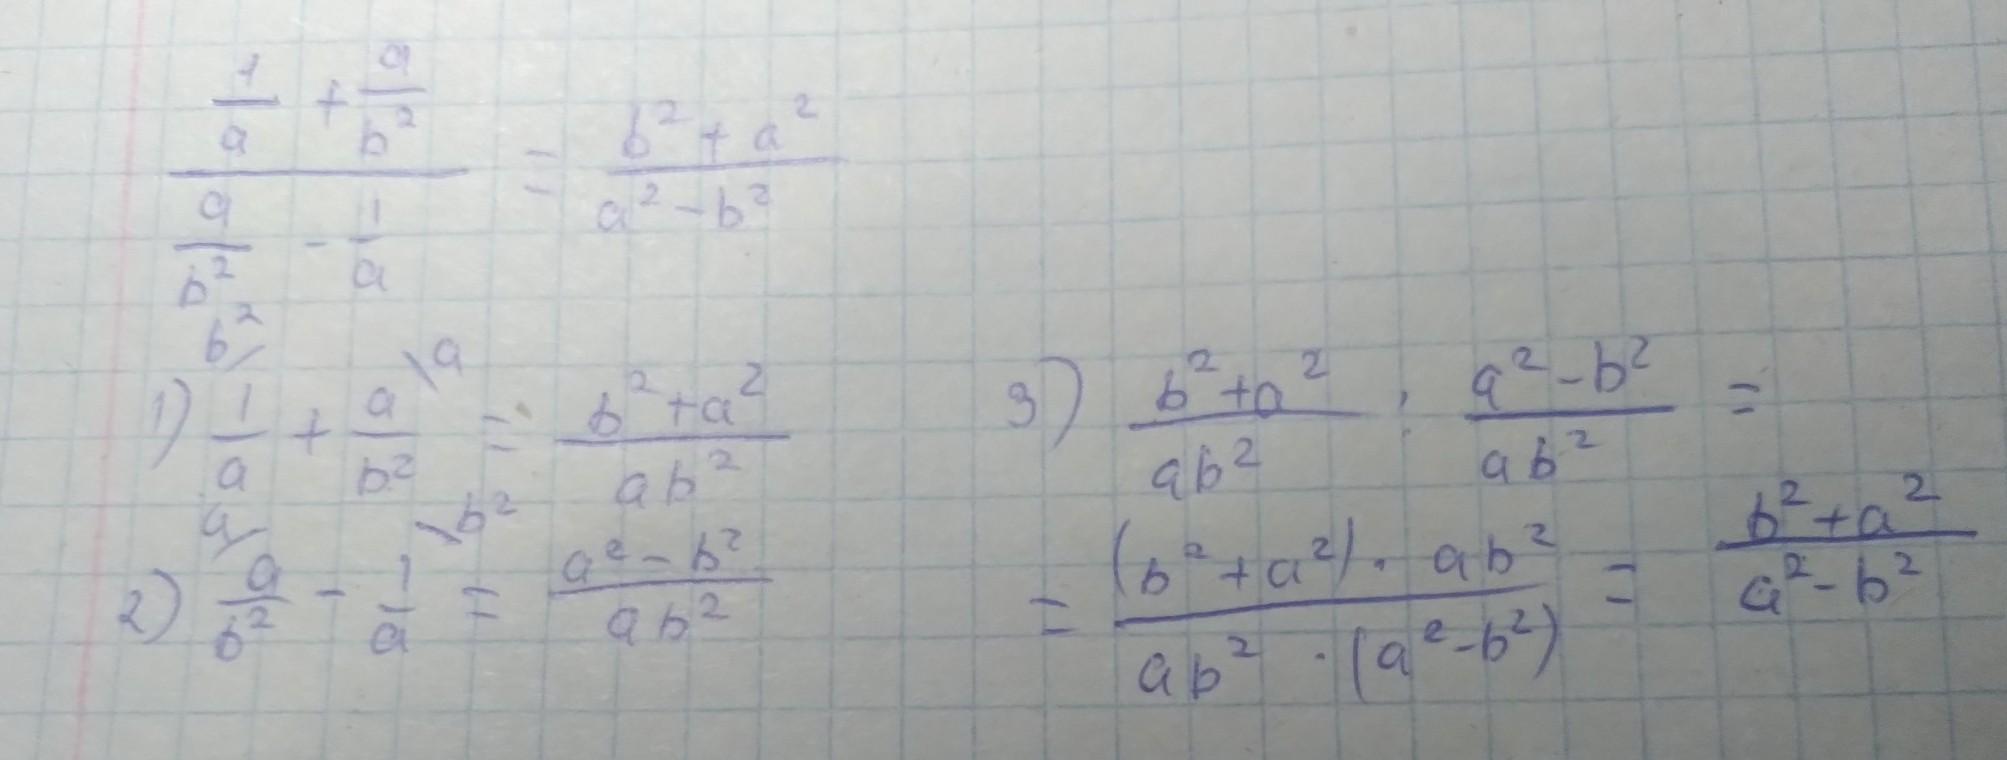 1/a + a/b² / a/b² - 1/a = b² + a² / a² - b²
1) b²/ 1/a + a/b² \a = b² + a² / ab²
2) a/ a/b² - 1/a \b² = a² - b² / ab²
3) b² + a² / ab² : a² - b² / ab² =
= (b² + a²) · ab² / ab² · (a² - b²) = b² + a² / a² - b²